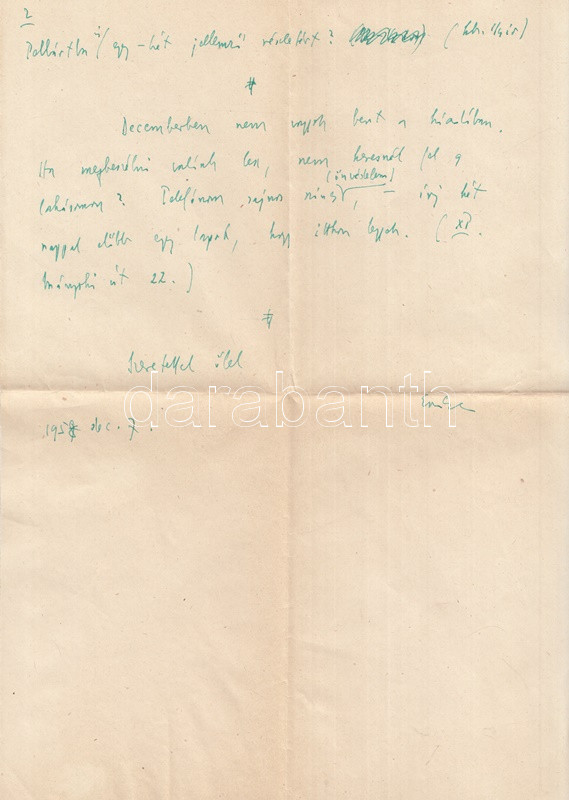 2
egy-két jellemző részletért?
#
Decemberben nem vagyok bent a kiadóban.
Ha megbeszélni valónk lesz, nem keresnél fel a
(önvédelem)
lakásomon? Telefonom, sajnos nincs, – írj két
nappal előbb egy lapot, hogy itthon legyek. (XI.
Ményeki út 22.)
#
Szeretettel ölel
Imre
darabanth
195 dec. 7.